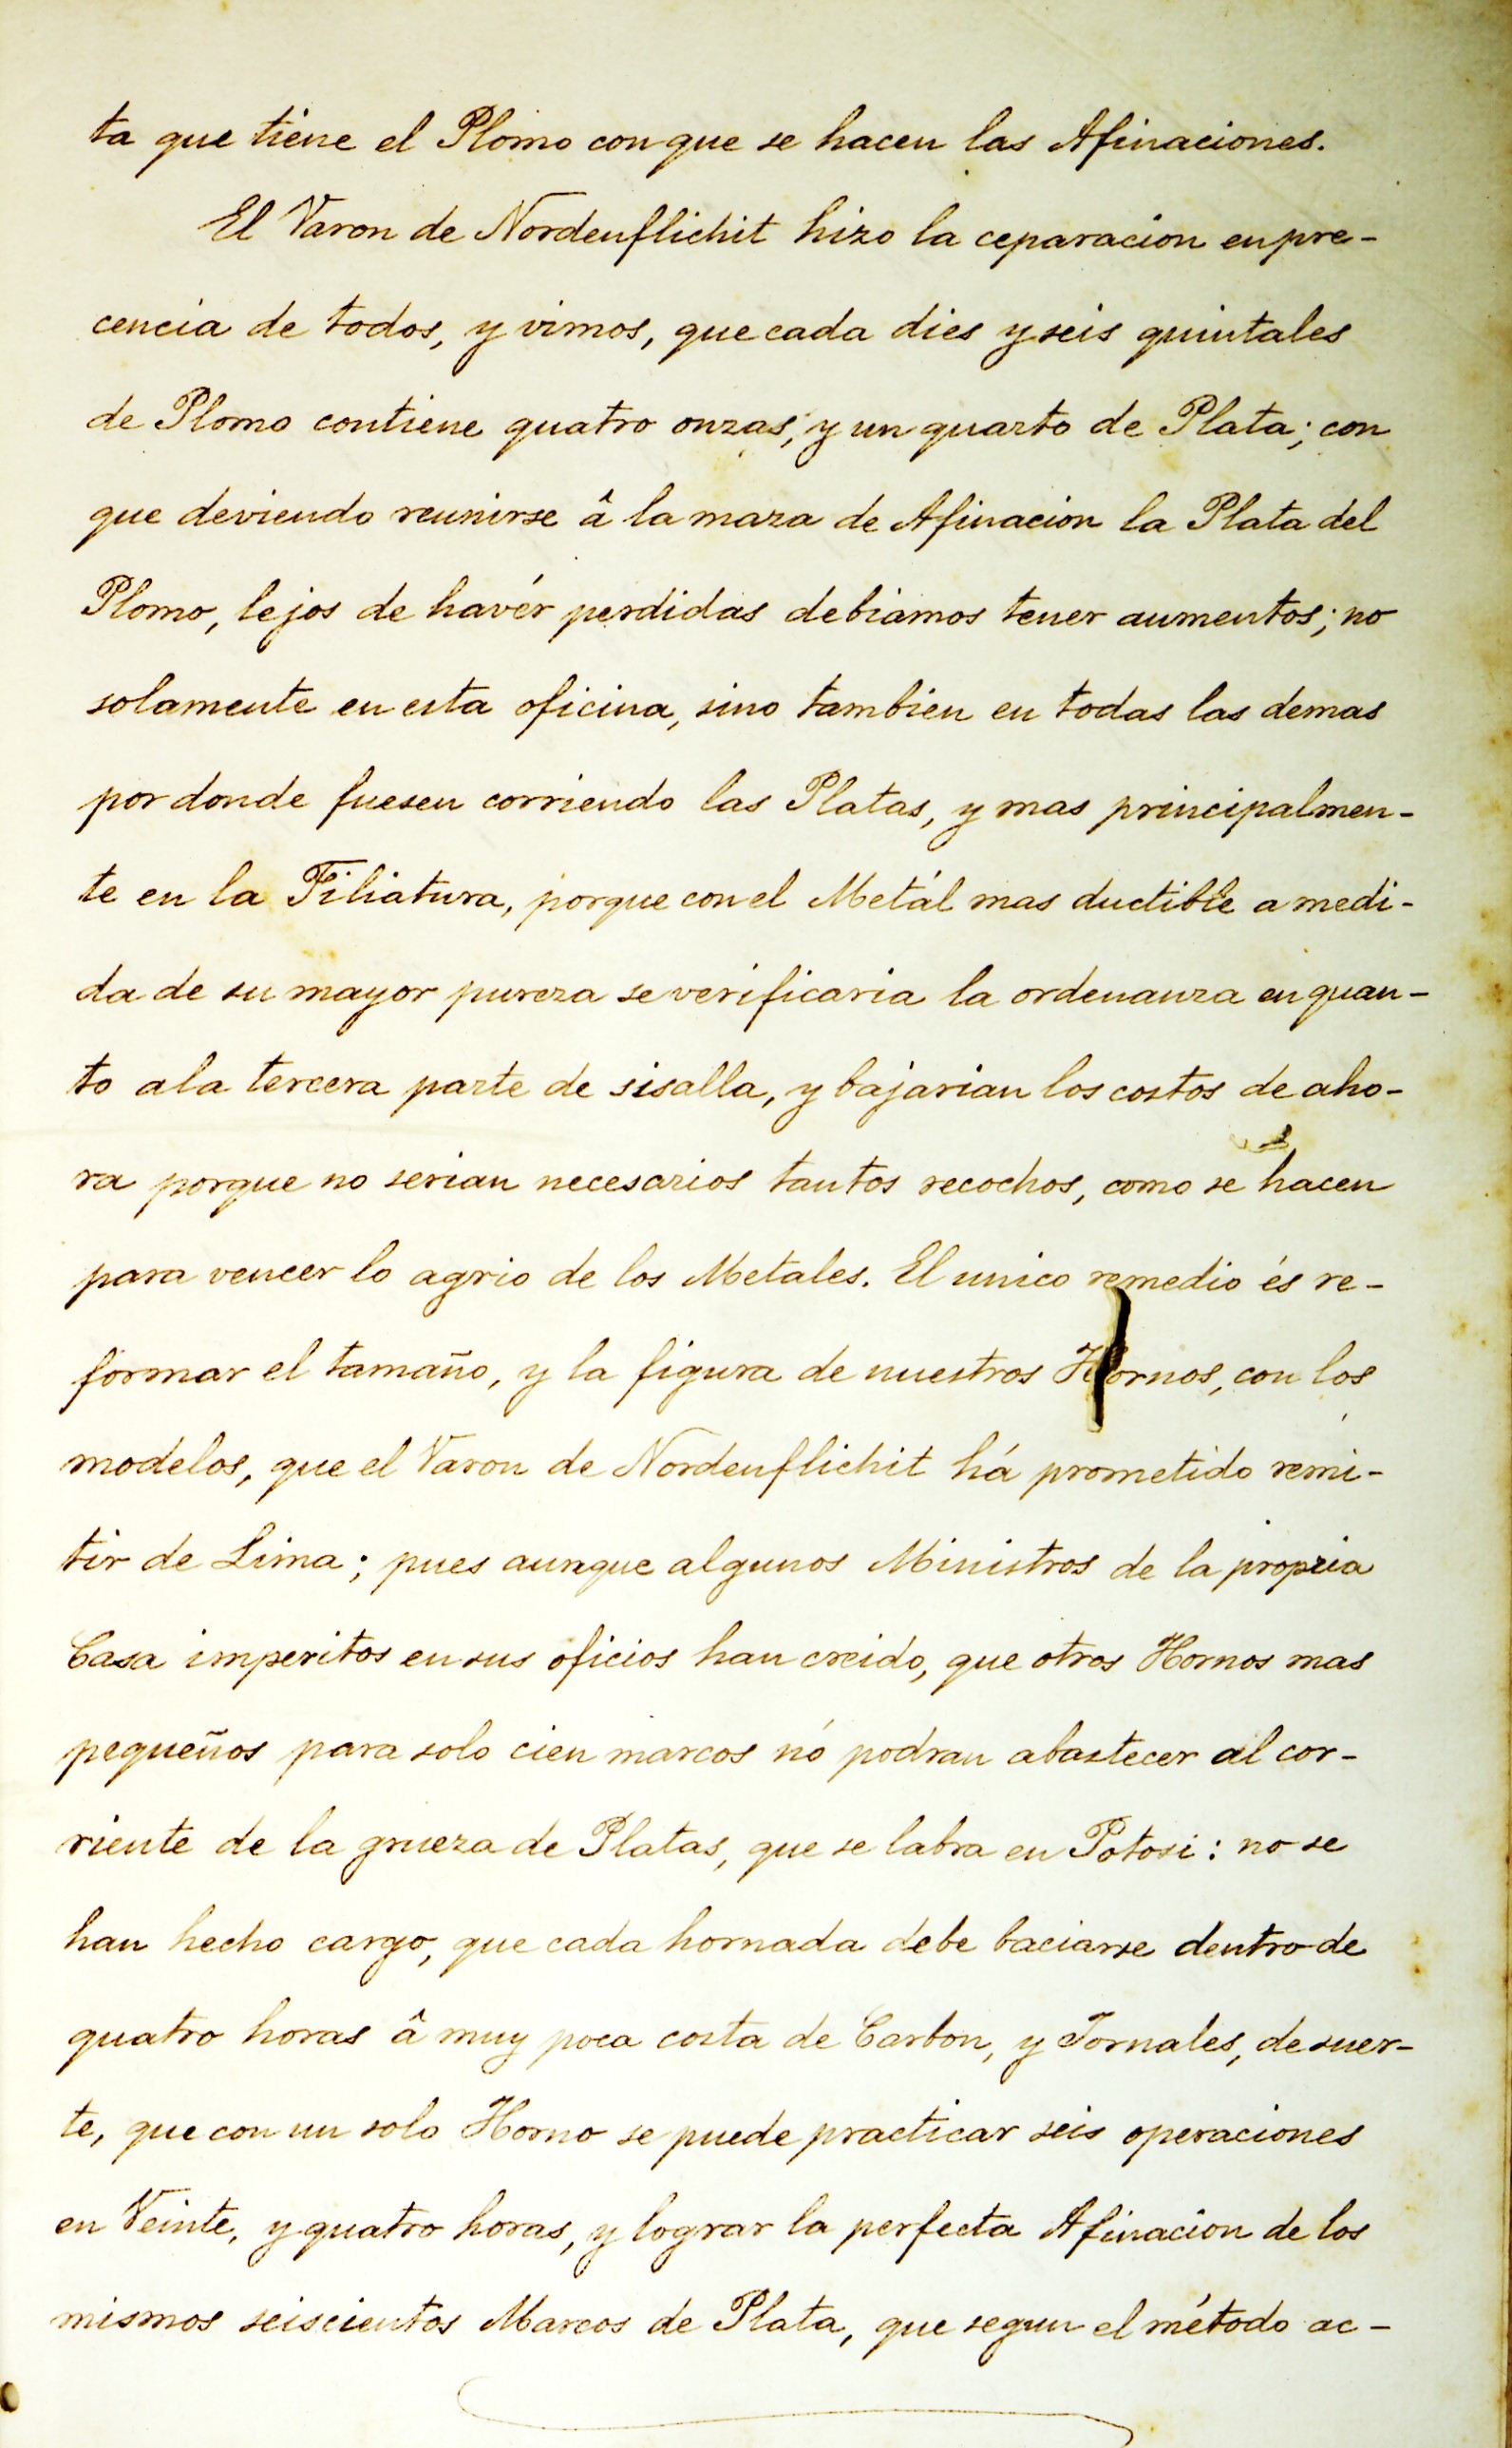 ta que tiene el Plomo con que se hacen las Afinaciones.
El Varon de Nordenflichit hizo la ceparacion en pre-
cencia de todos, y vimos, que cada dies y seis quintales
de Plomo contiene quatro onzas, y un quarto de Plata; con
que deviendo reunirse â la maza de Afinacion la Plata del
Plomo, lejos de havér perdidas debiamos tener aumentos; no
solamente en esta oficina, sino tambien en todas las demas
por donde fuesen corriendo las Platas, y mas principalmen-
te en la Filiatura, porque con el Metál mas ductible a medi-
da de su mayor pureza se verificaria la ordenanza en quan-
to a la tercera parte de sisalla, y bajarian los costos de aho-
ra porque no serian necesarios tantos recochos, como se hacen
para vencer lo agrio de los Metales. El unico remedio és re-
formar el tamaño, y la figura de nuestros Hornos, con los
modelos, que el Varon de Nordenflichit há prometido remi-
tir de Lima; pues aunque algunos Ministros de la propria
Casa imperitos en sus oficios han creido, que otros Hornos mas
pequeños para solo cien marcos nó podran abastecer al cor-
riente de la grueza de Platas, que se labra en Potosi: no se
han hecho cargo, que cada hornada debe baciarse dentro de
quatro horas â muy poca costa de Carbon, y Jornales, de suer-
te, que con un solo Horno se puede practicar seis operaciones
en Veinte, y quatro horas, y lograr la perfecta Afinacion de los
mismos seiscientos Marcos de Plata, que segun el método ac-